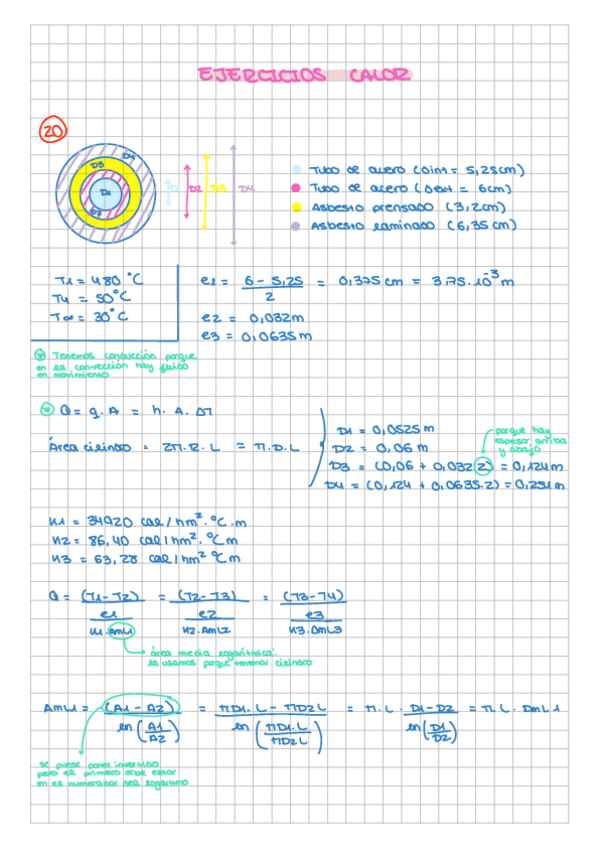 EJERCICIOS CALOR
20
D4
D3
D1
D2
D1 D2 D3 D4
Tubo de acero (Dint = 5,25cm)
Tubo de acero (Dext = 6cm)
Asbesto prensado (3,2cm)
Asbesto laminado (6,35cm)
T1 = 480 °C
T4 = 50°C
T∞ = 30°C
e1 = (6 - 5,25)/2 = 0,375cm = 3,75·10⁻³ m
e2 = 0,032m
e3 = 0,0635m
Tenemos conducción porque
en la convección hay fluido
en movimiento
Q = q.A = h. A. ΔT
Área cilindro = 2π.R.L = π.D.L
D1 = 0,0525m
D2 = 0,06m
D3 = (0,06 + 0,032(2)) = 0,124m
D4 = (0,124 + 0,0635.2) = 0,251m
porque hay
espesor arriba
y abajo
K1 = 34920 cal/hm².°C.m
K2 = 86,40 cal/hm².°Cm
K3 = 63,28 cal/hm² °Cm
Q = (T1-T2)/(e1/(K1.AmL1)) = (T2-T3)/(e2/(K2.AmL2)) = (T3-T4)/(e3/(K3.AmL3))
área media logarítmica:
la usamos porque tenemos cilindro
AmL1 = (A1 - A2)/ln(A1/A2) = (πD1.L - πD2L)/ln(πD1.L/πD2L) = π.L. (D1-D2)/ln(D1/D2) = π.L. DmL1
se puede poner invertido
pero el primero debe estar
en el numerador del logaritmo